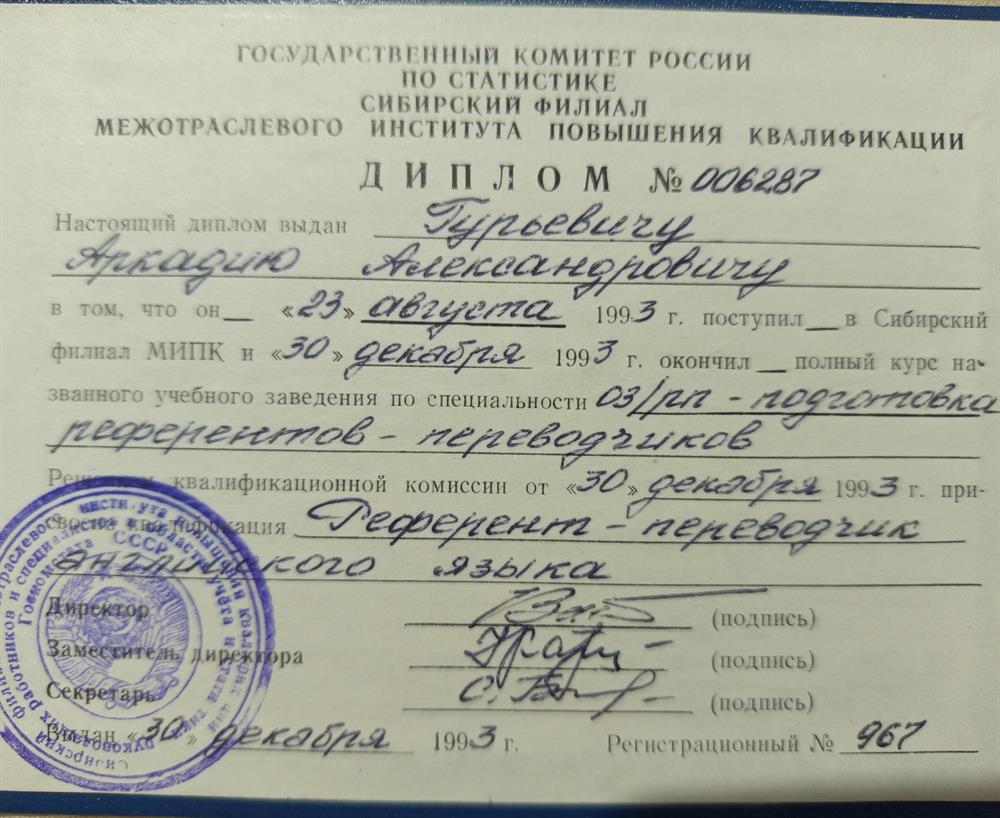 ГОСУДАРСТВЕННЫЙ КОМИТЕТ РОССИИ
ПО СТАТИСТИКЕ
СИБИРСКИЙ ФИЛИАЛ
МЕЖОТРАСЛЕВОГО ИНСТИТУТА ПОВЫШЕНИЯ КВАЛИФИКАЦИИ
ДИПЛОМ № 006287
Настоящий диплом выдан Гурьевичу
Аркадию Александровичу
в том, что он «23» августа 1993 г. поступил в Сибирский
филиал МИПК и «30» декабря 1993 г. окончил полный курс на-
званного учебного заведения по специальности 03/рп - подготовка
референтов - переводчиков
Решением квалификационной комиссии от «30» декабря 1993 г. при-
своена квалификация Референт - переводчик
английского языка
Директор (подпись)
Заместитель директора (подпись)
Секретарь (подпись)
Выдан «30» декабря 1993 г. Регистрационный № 967